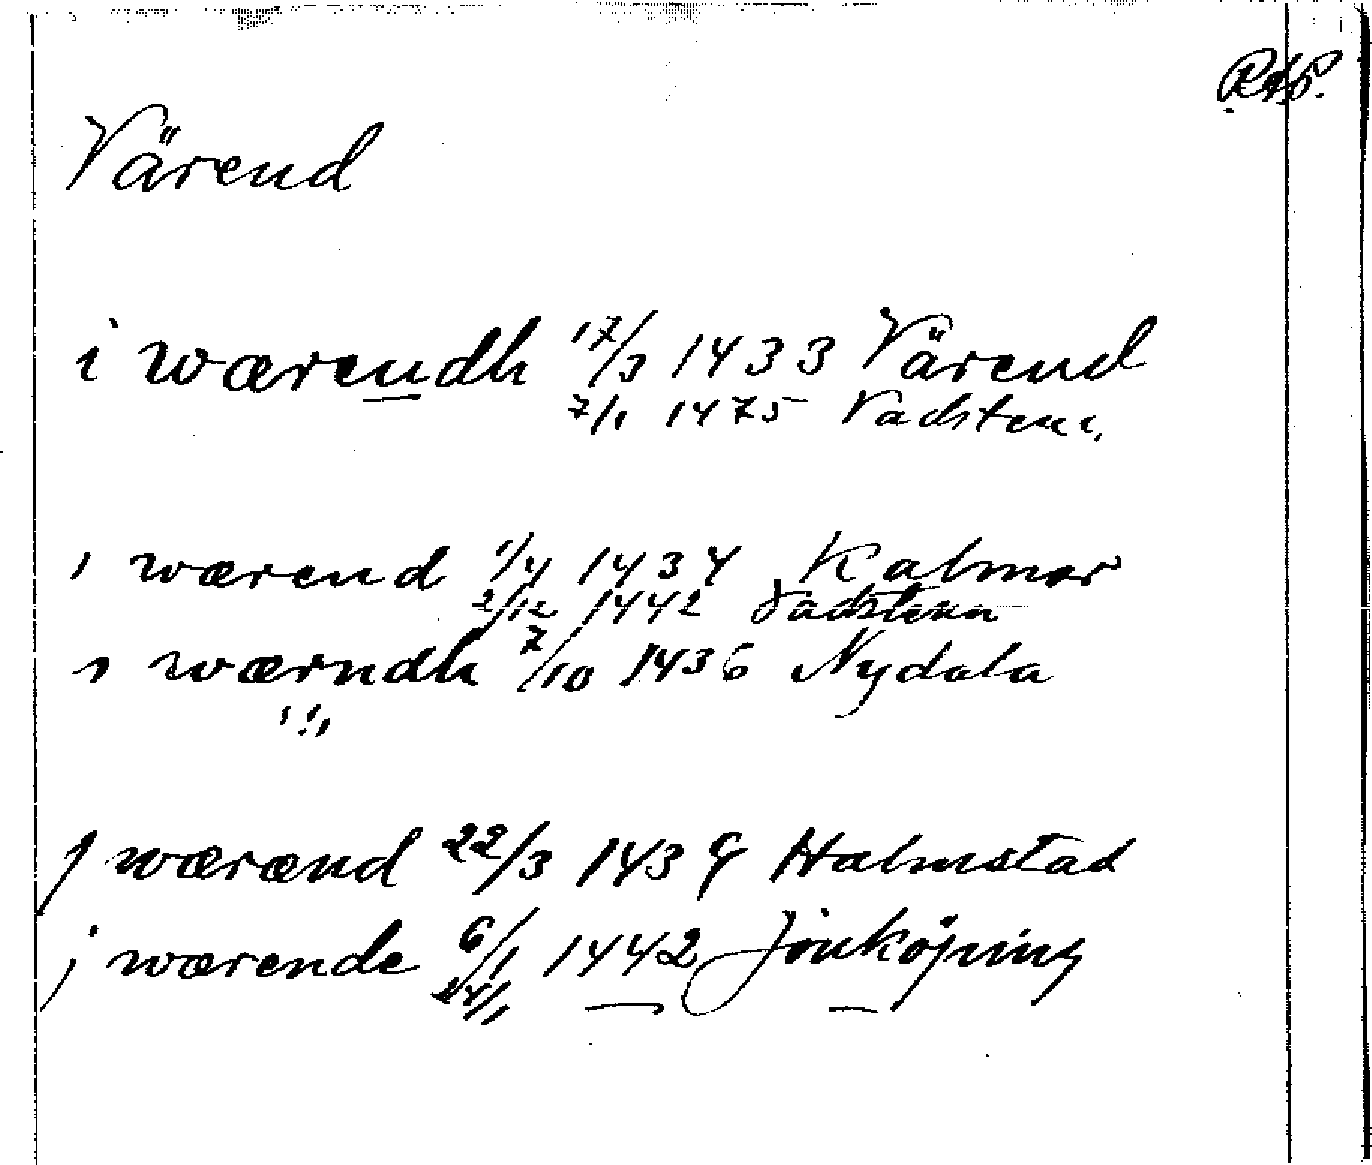 RAP.
Värend
i wærendh 17/3 1433 Värend
7/1 1475 Vadstena
i wærend 1/4 1434 Kalmar
2/12 1442 Vadstena
i wærndh 7/10 1436 Nydala
j wærænd 22/3 1439 Halmstad
j wærende 6/1 1442 Jönköping
14/1 — —